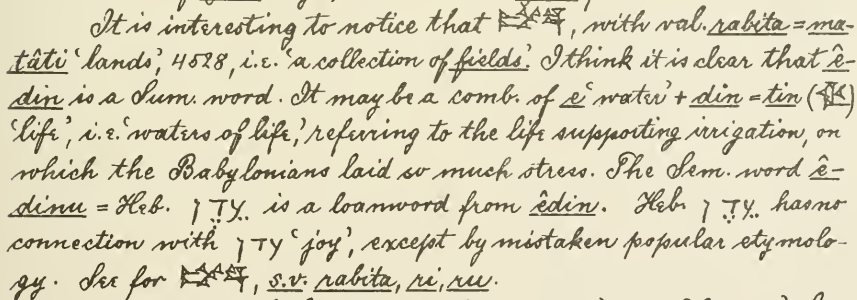 It is interesting to notice that , with val. rabita = ma-
tâti 'lands', 4528, i.e. 'a collection of fields.' I think it is clear that ê-
din is a Sum. word. It may be a comb. of e 'water' + din = tin ()
'life', i.e. 'waters of life,' referring to the life supporting irrigation, on
which the Babylonians laid so much stress. The Sem. word ê-
dinu = Heb. עֵדֶן is a loanword from êdin. Heb. עֵדֶן has no
connection with עדן 'joy', except by mistaken popular etymolo-
gy. See for , s.v. rabita, ri, ru.